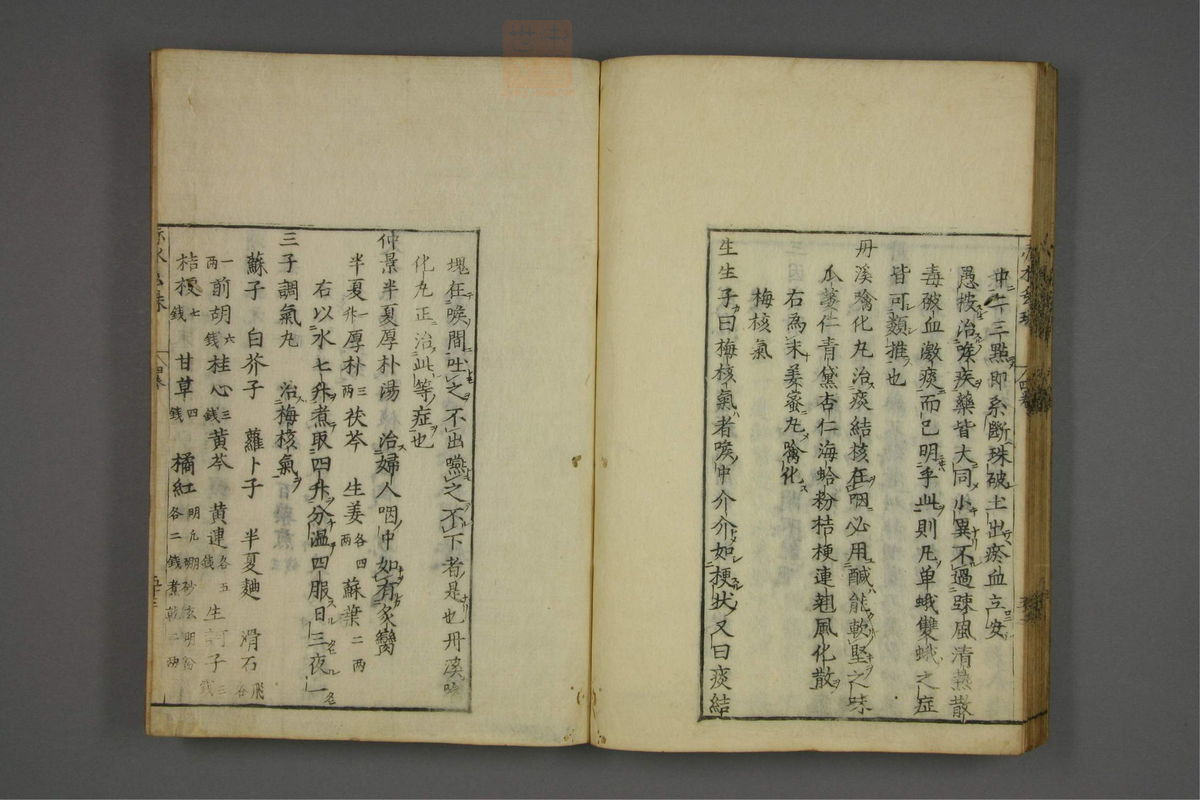 中二三點即糸斷珠破土出瘀血立安
愚按治喉疾藥皆大同小異不過踈風清熱散
毒破血激痰而已明乎此則凡单蛾雙蛾之症
皆可類推也
丹溪噙化丸治痰結核在咽必用醎能軟堅之味
瓜蔞仁青黛杏仁海蛤粉桔梗連翹風化散
右為末姜蜜丸噙化
梅核氣
生生子曰梅核氣者喉中介介如梗状又曰痰結
塊在喉間吐之不出嚥之不下者是也丹溪噙
化丸正治此等症也
仲景半夏厚朴湯 治婦人咽中如有炙臠
半夏一升厚朴三两茯苓 生姜各四两 蘇葉二两
右以水七升煮取四升分温四服日三夜一
三子調氣丸 治梅核氣
蘇子 白芥子 蘿卜子 半夏麯 滑石飛各
一两前胡六錢桂心三錢黄芩 黄連各五錢 生訶子三錢
桔梗七錢 甘草四錢 橘紅各二錢煮乾二两